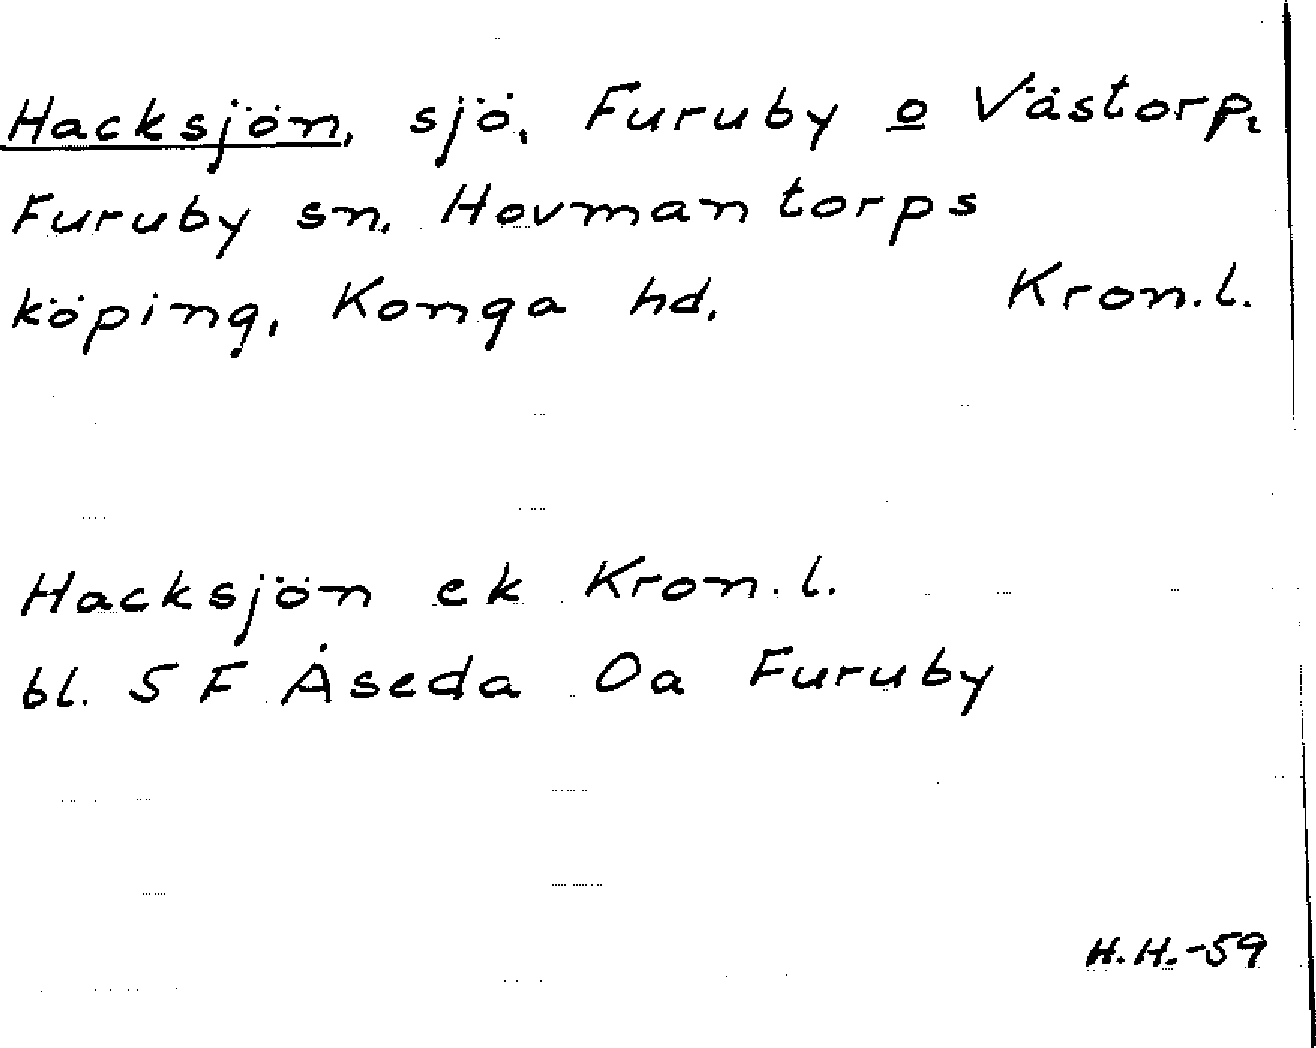 Hacksjön, sjö, Furuby o Västorp,
Furuby sn, Hovmantorps
köping, Konga hd, Kron.l.
Hacksjön ek Kron.l.
bl. 5 F Åseda Oa Furuby
H.H.-59